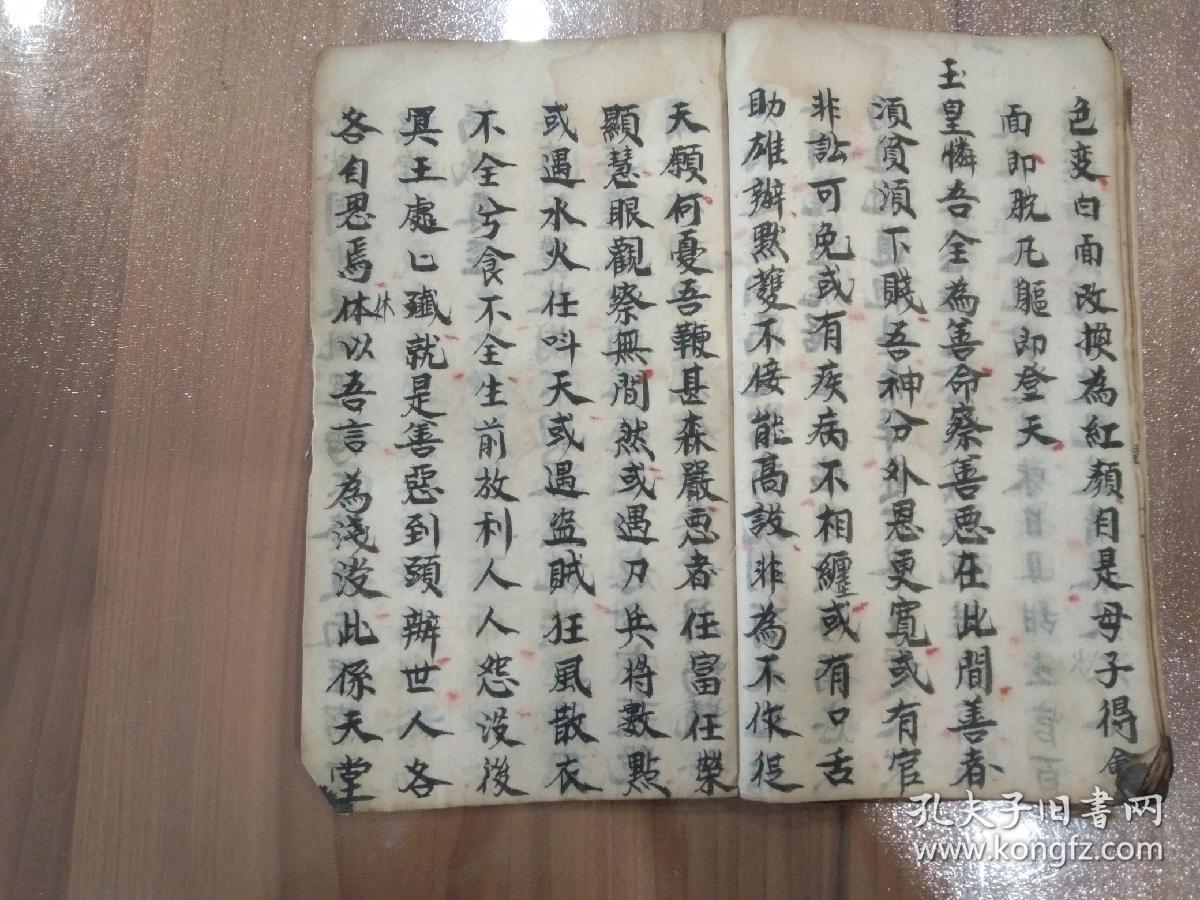 色变白面改換為紅顏目是母子得會
面即脫凡軀即登天
玉皇憐吾全為善命察善恶在此間善者
須貧須下賤吾神分外恩更寬或有官
非訟可免或有疾病不相纏或有口舌
助雄辦默䕶不倿能高設非為不作従
天願何憂吾鞭甚森嚴恶者任富任榮
顯慧眼觀察無間然或遇刀兵将數點
或遇水火任呌天或遇盗賊狂風散衣
不全兮食不全生前放利人人怨没後
冥王處匕殲就是善惡到頭辦世人各
各自思焉体休以吾言為淺没此係天堂
孔夫子旧书网
www.kongfz.com